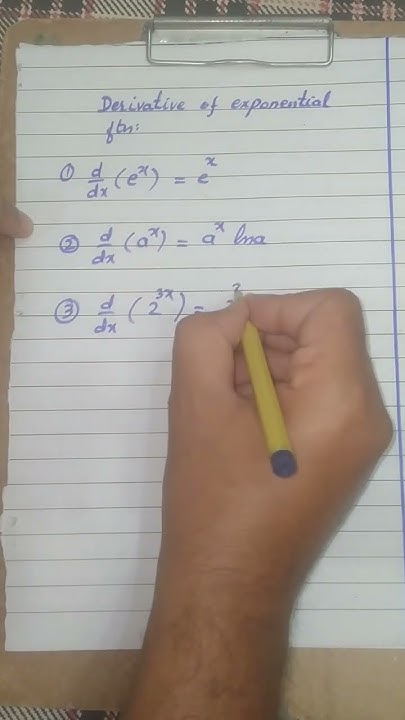 Derivative of exponential
ftn:
① d/dx (e^x) = e^x
② d/dx (a^x) = a^x lna
③ d/dx (2^3x) =